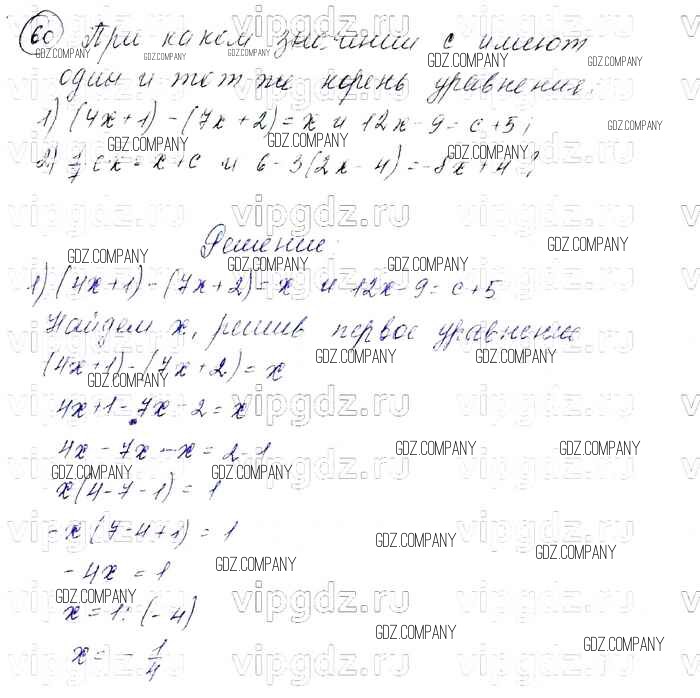 60 При каком значении с имеют
один и тот же корень уравнения:
1) (4x+1) - (7x+2) = x и 12x - 9 = c + 5;
2) 1/7 cx = x + c и 6 - 3(2x - 4) = -8x + 4?
Решение:
1) (4x+1) - (7x+2) = x и 12x - 9 = c + 5
Найдем x, решив первое уравнение
(4x+1) - (7x+2) = x
4x + 1 - 7x - 2 = x
4x - 7x - x = 2 - 1
x(4 - 7 - 1) = 1
-x(7 - 4 + 1) = 1
-4x = 1
x = 1 : (-4)
x = - 1/4